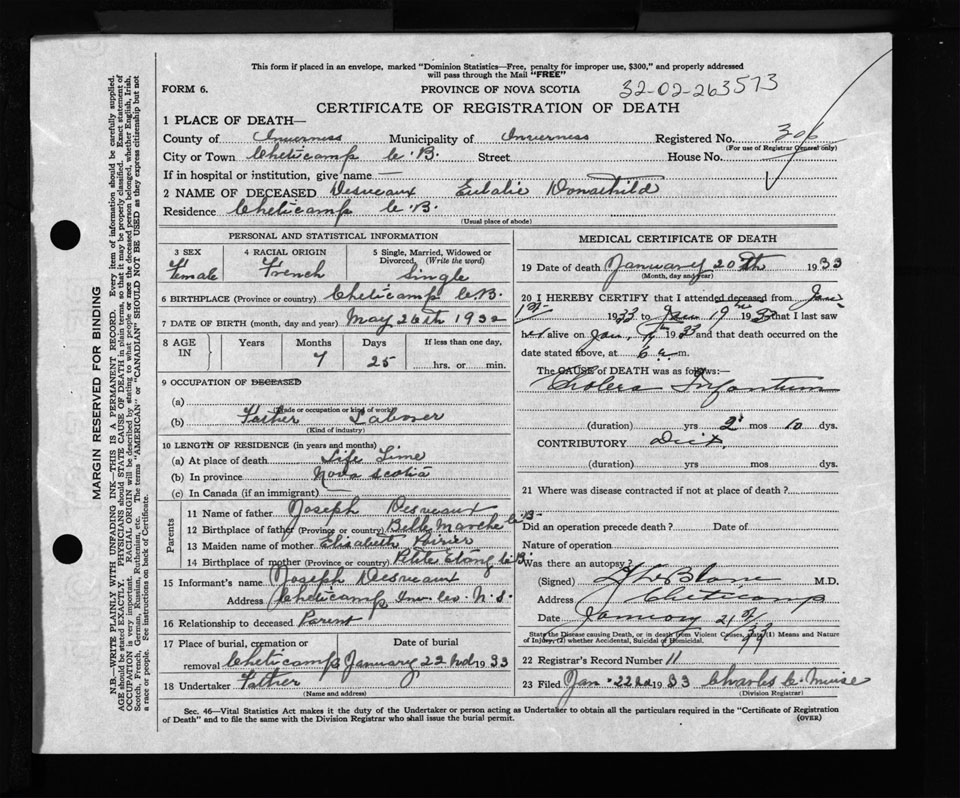 This form if placed in an envelope, marked "Dominion Statistics—Free, penalty for improper use, $300," and properly addressed
will pass through the Mail "FREE"
FORM 6.
PROVINCE OF NOVA SCOTIA
32-02-263573
CERTIFICATE OF REGISTRATION OF DEATH
1 PLACE OF DEATH—
County of Inverness Municipality of Inverness Registered No. 306
(For use of Registrar General only)
City or Town Cheticamp C.B. Street House No.
If in hospital or institution, give name —
2 NAME OF DECEASED Desveaux Eulalie Donathild
Residence Cheticamp C.B.
(Usual place of abode)
PERSONAL AND STATISTICAL INFORMATION
3 SEX 4 RACIAL ORIGIN 5 Single, Married, Widowed or
Divorced, (Write the word)
Female French Single
6 BIRTHPLACE (Province or country) Cheticamp C.B.
7 DATE OF BIRTH (month, day and year) May 26th 1932
8 AGE IN Years Months Days If less than one day,
7 25 hrs. or min.
9 OCCUPATION OF DECEASED
(a)
(Trade or occupation or kind of work)
(b) Father Laborer
(Kind of industry)
10 LENGTH OF RESIDENCE (in years and months)
(a) At place of death Life Time
(b) In province Nova Scotia
(c) In Canada (if an immigrant)
Parents
11 Name of father Joseph Desveaux
12 Birthplace of father (Province or country) Belle Marche C.B.
13 Maiden name of mother Elisabeth Poirier
14 Birthplace of mother (Province or country) Petit Etang C.B.
15 Informant's name Joseph Desveaux
Address Cheticamp Inv. Co. N.S.
16 Relationship to deceased Parent
17 Place of burial, cremation or Date of burial
removal Cheticamp January 22nd 1933
18 Undertaker Father
(Name and address)
MEDICAL CERTIFICATE OF DEATH
19 Date of death January 20th 1933
(Month, day and year)
20 I HEREBY CERTIFY that I attended deceased from
1st 1933 to 19 193 that I last saw
her alive on Jan. 1933 and that death occurred on
date stated above, at 6 a.m.
The CAUSE of DEATH was as follows:—
Cholera Infantum
(duration) yrs 2 mos 10 dys.
CONTRIBUTORY Diet,
(duration) yrs mos dys.
21 Where was disease contracted if not at place of death?
Did an operation precede death? Date of
Nature of operation
Was there an autopsy?
(Signed) LeBlanc M.D.
Address Cheticamp
Date January 21st
State the Disease causing Death, or in death from Violent Causes, state (1) Means and Nature
of Injury, (2) whether Accidental, Suicidal or Homicidal.
22 Registrar's Record Number 11
23 Filed Jan. 22nd 1933 Charles C. Muise
(Division Registrar)
Sec. 46—Vital Statistics Act makes it the duty of the Undertaker or person acting as Undertaker to obtain all the particulars required in the "Certificate of Registration
of Death" and to file the same with the Division Registrar who shall issue the burial permit.
(OVER)
MARGIN RESERVED FOR BINDING
N.B.—WRITE PLAINLY WITH UNFADING INK—THIS IS A PERMANENT RECORD. Every item of information should be carefully supplied.
AGE should be stated EXACTLY. PHYSICIANS should STATE CAUSE OF DEATH in plain terms, so that it may be properly classified. Exact statement of
OCCUPATION is very important. RACIAL ORIGIN will be described by stating to what people or race the deceased person belonged, whether English, Irish,
Scotch, French, German, Russian, Ruthenian, etc. The terms "AMERICAN" or "CANADIAN" SHOULD NOT BE USED as they express citizenship but not
a race or people. See instructions on back of Certificate.